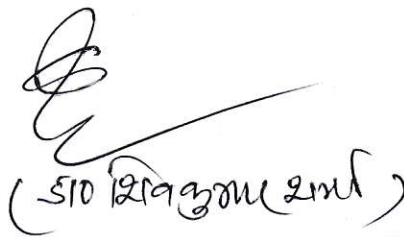 (डा० शिवकुमार शर्मा)